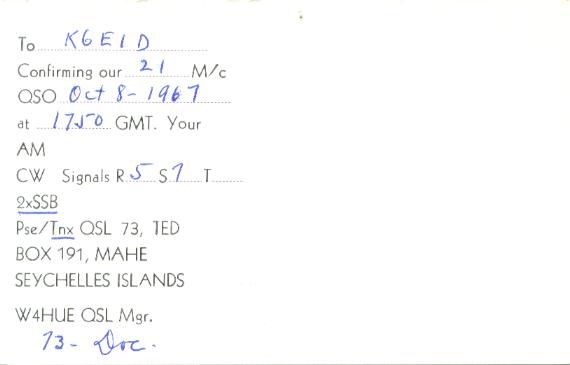 To K6EID
Confirming our 21 M/c
QSO Oct 8-1967
at 1750 GMT. Your
AM
CW Signals R 5 S 7 T
2xSSB
Pse/Tnx QSL 73, TED
BOX 191, MAHE
SEYCHELLES ISLANDS
W4HUE QSL Mgr.
73- Doc.